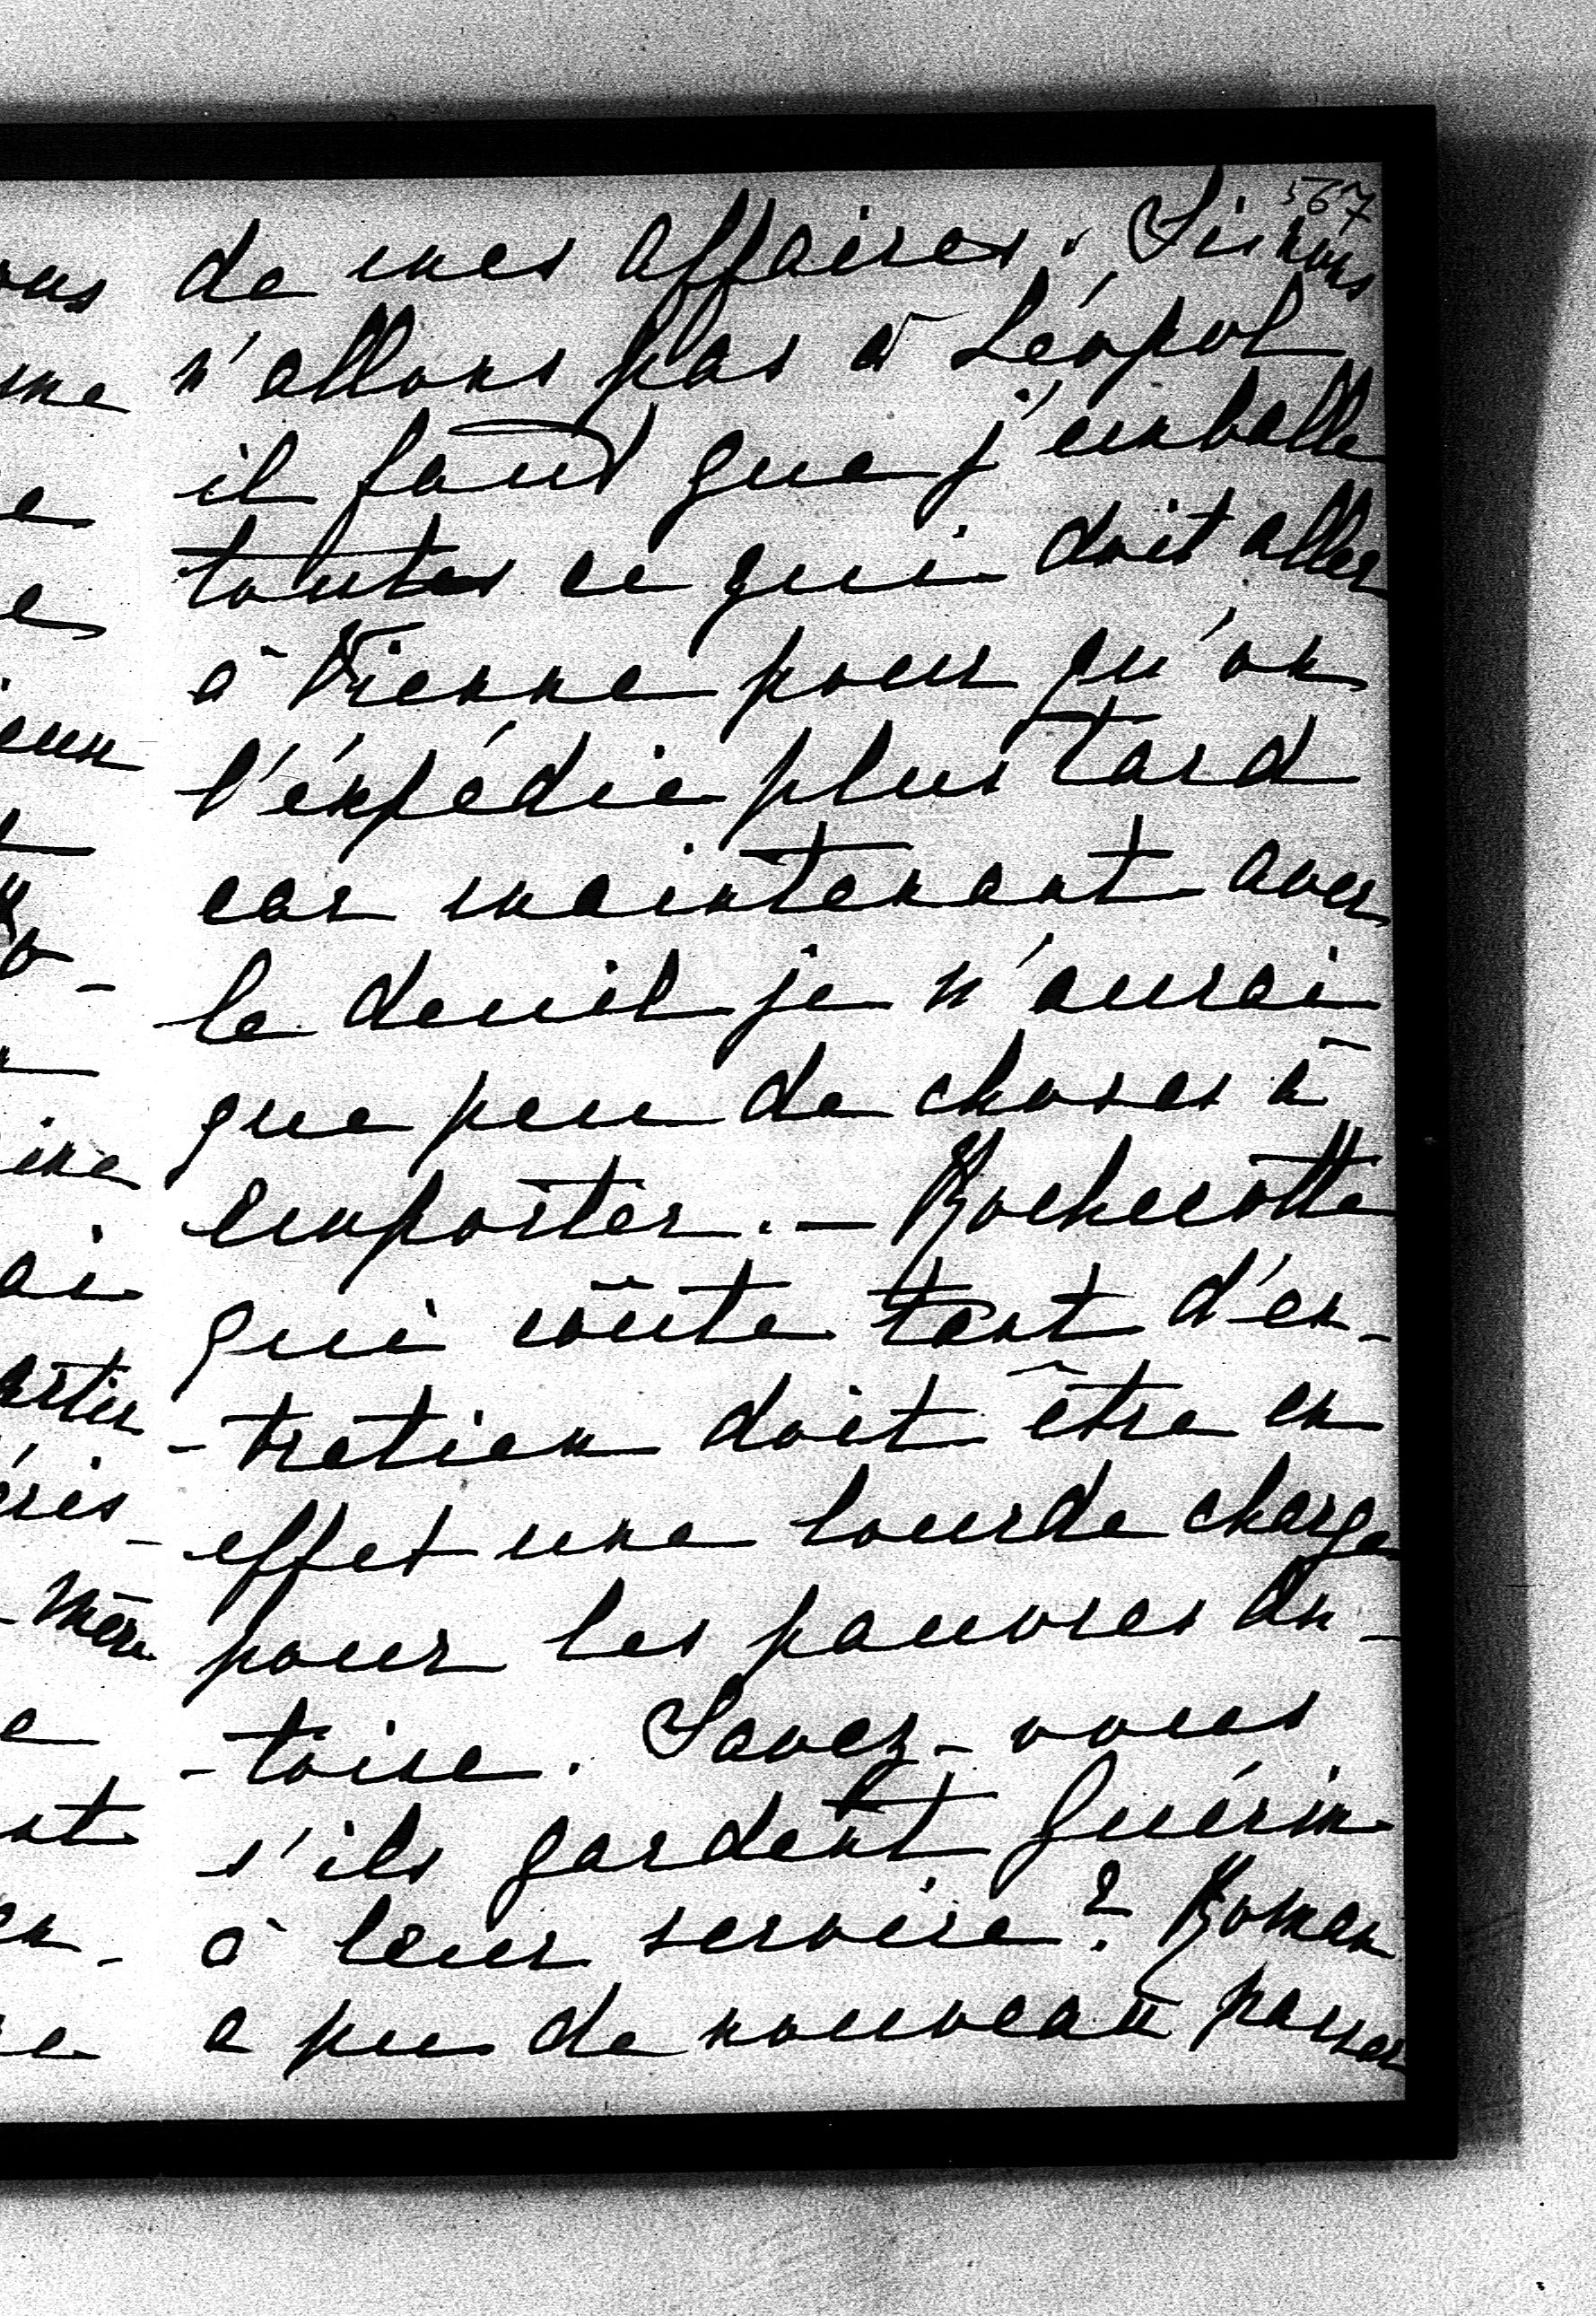 567
de mes affaires. Si nous
n'allons pas à Léopol
il faut que j'emballe
toutes ce qui doit aller
à Vienne pour qu'on
l'éxpédie plus tard
car maintenant avec
le deuil je n'aurai
que peu de choses à
emporter. — Rochecotte
qui coûte tant d'en-
-tretien doit être en
effet une lourde charge
pour les pauvres An-
-toine. Savez-vous
s'ils gardent Guérin
à leur service? Roman
a pu de nouveau passer